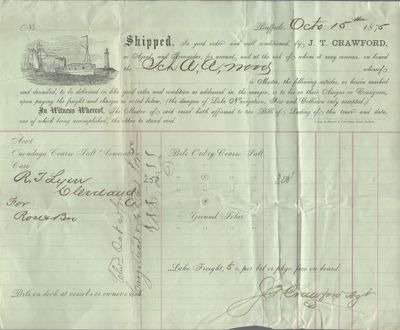 No.
Buffalo, Octo 15 1875
Shipped, In good order and well conditioned, by J. T. CRAWFORD,
as Agent and Forwarder, for account, and at the risk of whom it may concern, on board
the Sch whereof
is Master, the following articles, as herein marked
and described, to be delivered in like good order and condition as addressed in the margin, or to his or their Assigns or Consignees,
upon paying the freight and charges as noted below, (the dangers of Lake Navigation, Fire and Collision only excepted.)
In Witness Whereof, The Master of said vessel hath affirmed to two Bills of Lading of this tenor and date,
one of which being accomplished, the other to stand void.
Acct
Onondaga Coarse Salt Association Bbls Onbry Coarse Salt,
Care
R. T. Lyon 250 "
Cleveland O
For
Ground Solar
Lake Freight, 5 c. per bbl or pkge. free on board.
Bbls on deck at vessel's or owner's risk
J. T. Crawford Agt